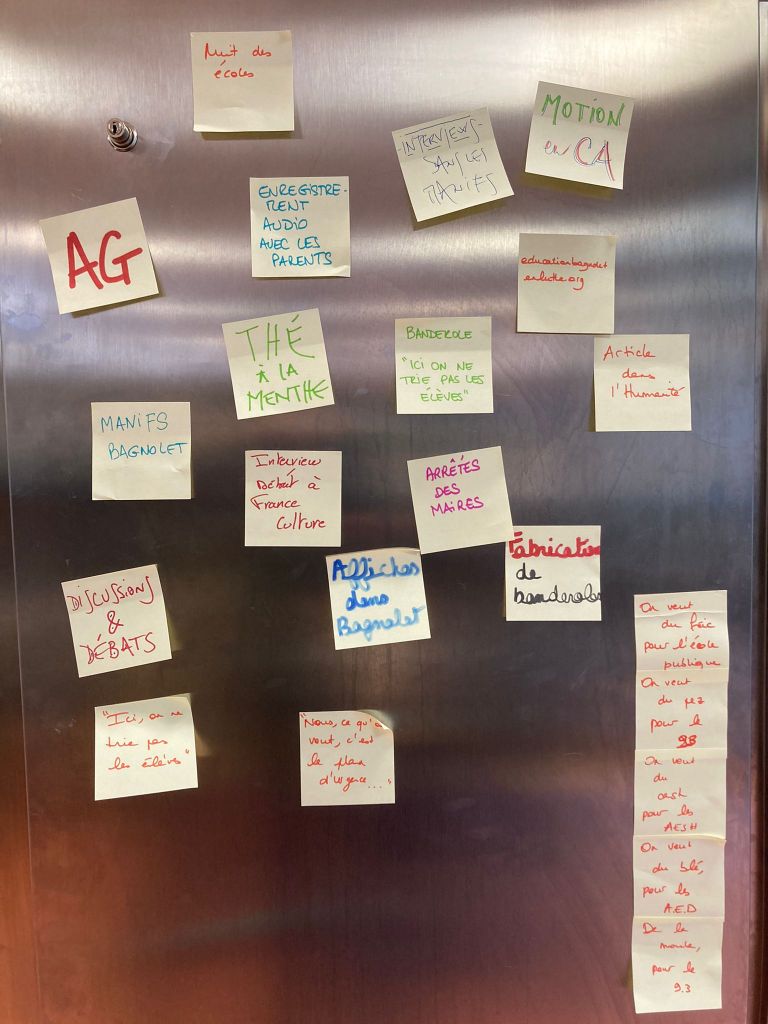 Nuit des
écoles
MOTION
en CA
-INTERVIEWS-
DANS LES
MANIFS
ENREGISTRE-
MENT
AUDIO
AVEC LES
PARENTS
AG
educationbagnolet
enlutte.org
THÉ
À LA
MENTHE
BANDEROLE
"ICI ON NE
TRIE PAS LES
ÉLÈVES"
Article
dans
l'Humanité
MANIFS
BAGNOLET
Interview
Début à
France
Culture
ARRÊTÉS
DES
MAIRES
Fabrication
de
banderoles
Affiches
dans
Bagnolet
DISCUSSIONS
&
DÉBATS
"Ici, on ne
trie pas
les élèves"
"Nous, ce qu'on
veut, c'est
le plan
d'urgence..."
On veut
du fric
pour l'école
publique
On veut
du pez
pour le
93
On veut
du
cash
pour les
AESH
On veut
du blé,
pour les
A.E.D
De la
moula,
pour le
9.3